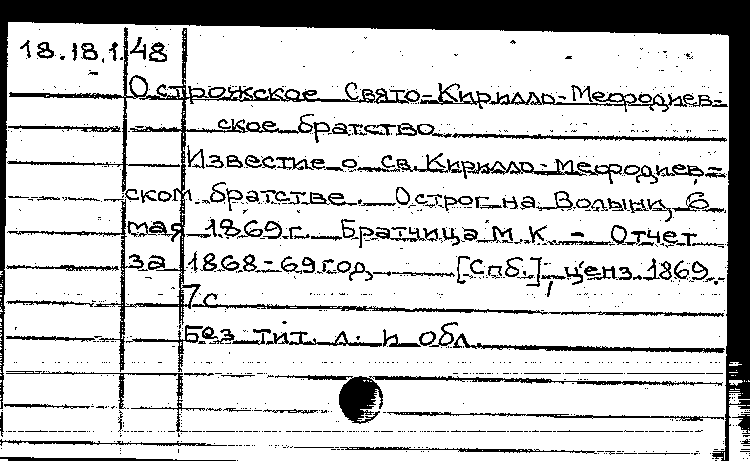 18.18.1.48
Острожское Свято-Кирилло-Мефодиев-
ское братство
Известие о св. Кирилло-Мефодиев-
ском братстве. Острог на Волыни, 6
мая 1869 г. Братчица М. К. - Отчет
за 1868-69 год. [Спб.], ценз. 1869.
7 с
Без тит. л. и обл.